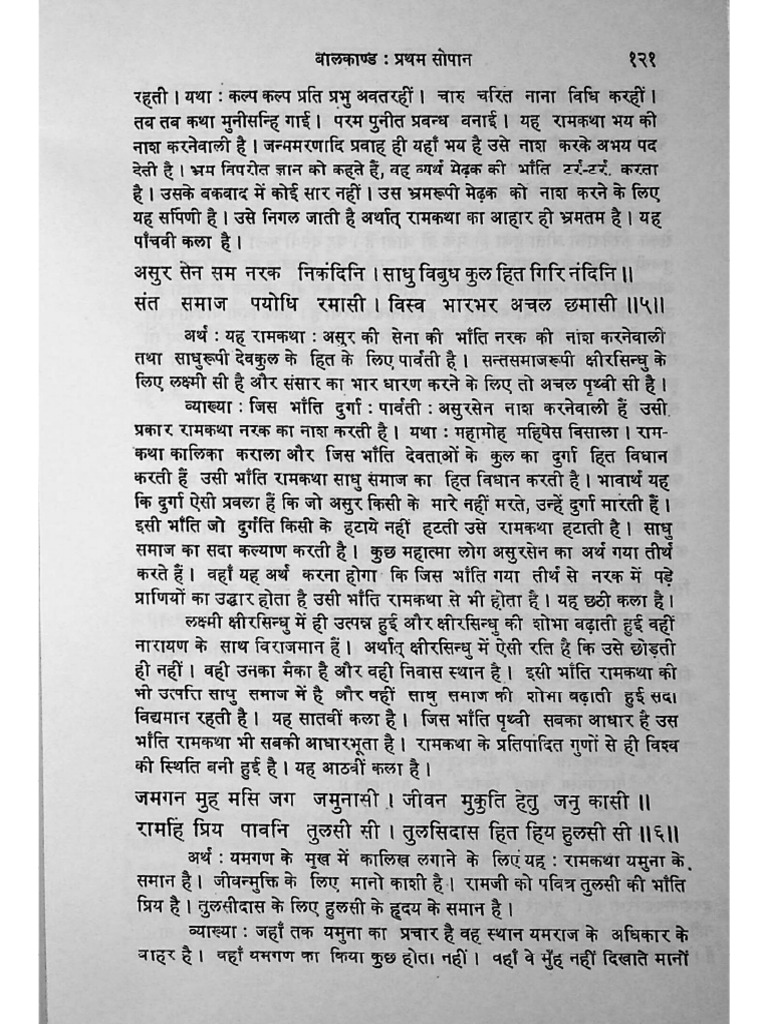 बालकाण्ड : प्रथम सोपान १२१
रहती । यथा : कल्प कल्प प्रति प्रभु अवतरहीं । चारु चरित नाना विधि करहीं ।
तब तब कथा मुनीसन्हि गाई । परम पुनीत प्रबन्ध बनाई । यह रामकथा भय की
नाश करनेवाली है । जन्ममरणादि प्रवाह ही यहाँ भय है उसे नाश करके अभय पद
देती है । भ्रम विपरीत ज्ञान को कहते हैं, वह व्यर्थ मेढ़क की भाँति टर्र-टर्र. करता
है । उसके बकबाद में कोई सार नहीं । उस भ्रमरूपी मेढ़क को नाश करने के लिए
यह सर्पिणी है । उसे निगल जाती है अर्थात् रामकथा का आहार ही भ्रमतम है । यह
पाँचवी कला है ।
असुर सेन सम नरक निकंदिनि । साधु विबुध कुल हित गिरि नंदिनि ॥
संत समाज पयोधि रमासी । विस्व भारभर अचल छमासी ॥५॥
अर्थ : यह रामकथा : असुर की सेना की भाँति नरक की नाश करनेवाली
तथा साधुरूपी देवकुल के हित के लिए पार्वती है । सन्तसमाजरूपी क्षीरसिन्धु के
लिए लक्ष्मी सी है और संसार का भार धारण करने के लिए तो अचल पृथ्वी सी है ।
व्याख्या : जिस भाँति दुर्गा : पार्वती : असुरसेन नाश करनेवाली हैं उसी
प्रकार रामकथा नरक का नाश करती है । यथा : महामोह महिषेस बिसाला । राम-
कथा कालिका कराला और जिस भाँति देवताओं के कुल का दुर्गा हित विधान
करती हैं उसी भाँति रामकथा साधु समाज का हित विधान करती है । भावार्थ यह
कि दुर्गा ऐसी प्रवला हैं कि जो असुर किसी के मारे नहीं मरते, उन्हें दुर्गा मारती हैं ।
इसी भाँति जो दुर्गति किसी के हटाये नहीं हटती उसे रामकथा हटाती है । साधु
समाज का सदा कल्याण करती है । कुछ महात्मा लोग असुरसेन का अर्थ गया तीर्थ
करते हैं । वहाँ यह अर्थ करना होगा कि जिस भाँति गया तीर्थ से नरक में पड़े
प्राणियों का उद्धार होता है उसी भाँति रामकथा से भी होता है । यह छठी कला है ।
लक्ष्मी क्षीरसिन्धु में ही उत्पन्न हुई और क्षीरसिन्धु की शोभा बढ़ाती हुई वहीं
नारायण के साथ विराजमान हैं । अर्थात् क्षीरसिन्धु में ऐसी रति है कि उसे छोड़ती
ही नहीं । वही उनका मैका है और वही निवास स्थान है । इसी भाँति रामकथा की
भी उत्पत्ति साधु समाज में है और वहीं साधु समाज की शोभा बढ़ाती हुई सदा
विद्यमान रहती है । यह सातवीं कला है । जिस भाँति पृथ्वी सबका आधार है उस
भाँति रामकथा भी सबकी आधारभूता है । रामकथा के प्रतिपादित गुणों से ही विश्व
की स्थिति बनी हुई है । यह आठवीं कला है ।
जमगन मुह मसि जग जमुनासी । जीवन मुकुति हेतु जनु कासी ॥
रामहिं प्रिय पावनि तुलसी सी । तुलसिदास हित हिय हुलसी सी ॥६॥
अर्थ : यमगण के मुख में कालिख लगाने के लिए यह : रामकथा यमुना के
समान है । जीवन्मुक्ति के लिए मानो काशी है । रामजी को पवित्र तुलसी की भाँति
प्रिय है । तुलसीदास के लिए हुलसी के हृदय के समान है ।
व्याख्या : जहाँ तक यमुना का प्रचार है वह स्थान यमराज के अधिकार के
बाहर है । वहाँ यमगण का किया कुछ होता नहीं । वहाँ वे मुँह नहीं दिखाते मानों